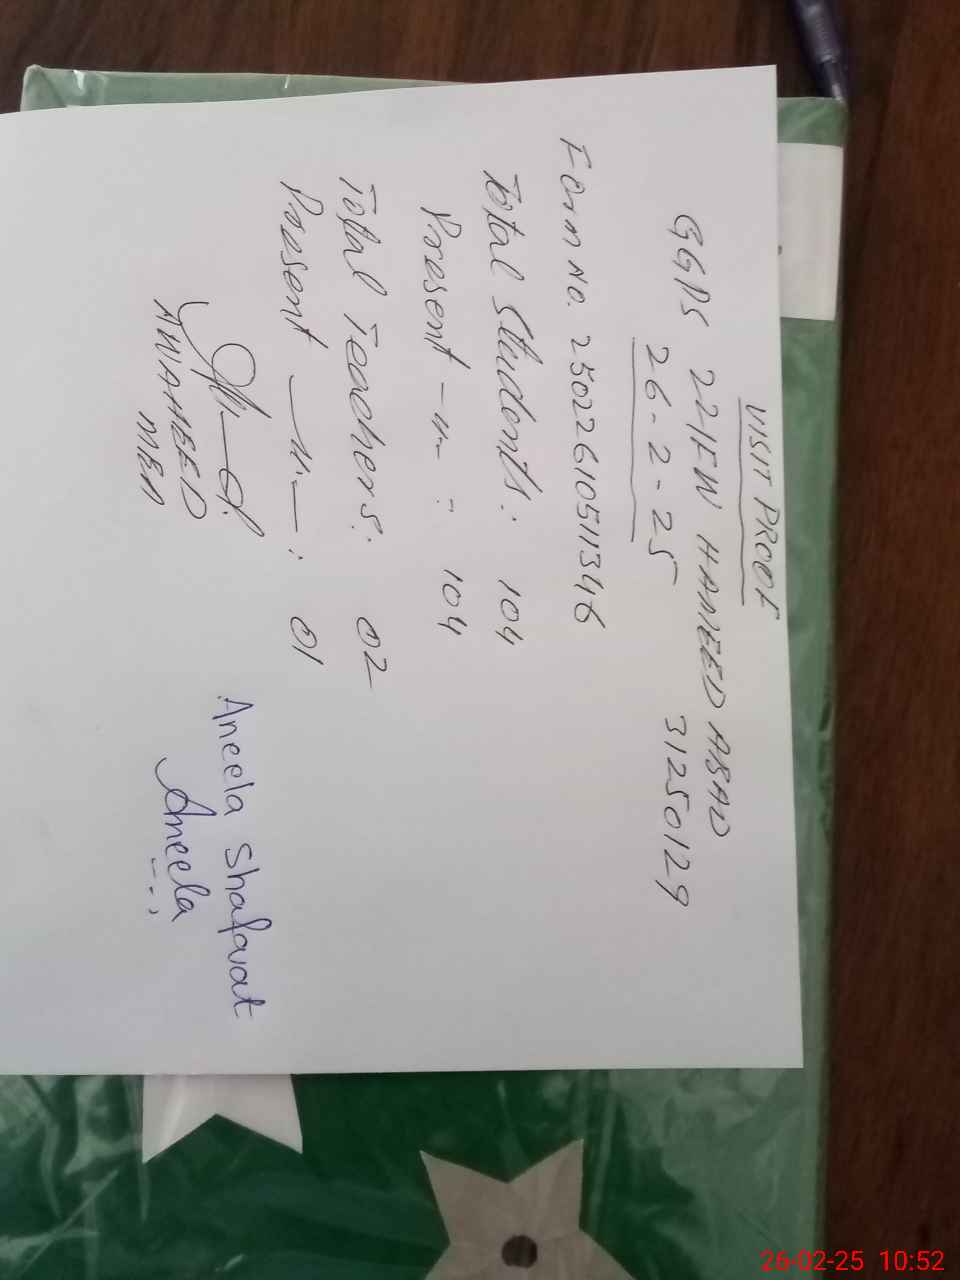 VISIT PROOF
GGPS 221EW HAMEED ABAD
26-2-25 31250129
Form No. 25022610511346
Total Students: 104
Present -〃- : 104
Total Teachers: 02
Present -〃- : 01
AWAHEED
MEA
Aneela Shafawat
Aneela
26-02-25 10:52